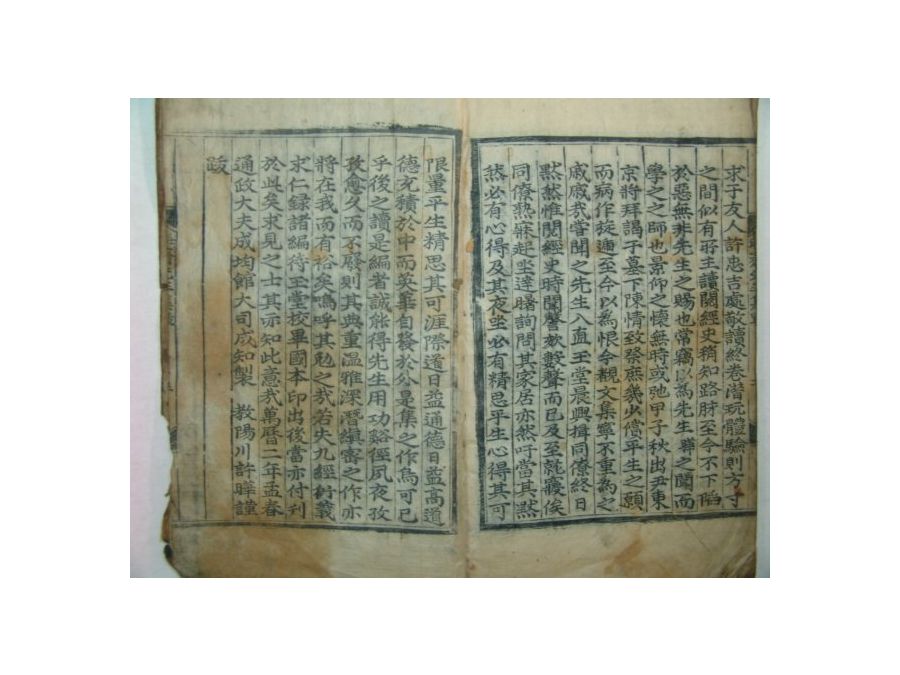 求子友人許忠吉處敬讀終卷潛玩體驗則方寸
之間似有所主讀閱經史稍知路脉至今不下陷
於惡無非先生之賜也常竊以爲先生聯之聞而
學之之師也景仰之懷無時或弛甲子秋出尹東
京將拜謁于墓下陳情致祭庶幾少償平生之願
而病作旋遞至今以爲恨今覩文集寧不重爲之
戚戚哉嘗聞之先生入直玉堂晨興揖同僚終日
黙然惟閱經史時聞謦欬數聲而已及至就寢俟
同僚熟寐起坐達曙詢問其家居亦然吁當其黙
然必有心得及其夜坐必有精思平生心得其可
限量平生精思其可涯際道日益通德日益高道
德充積於中而英華自發於外是集之作烏可已
乎後之讀是編者誠能得先生用功谿徑夙夜孜
孜愈久而不廢則其典重溫雅深潛縝密之作亦
將在我而有裕矣嗚呼其勉之哉若夫九經衍義
求仁録諸編待玉堂校畢國本印出後當亦付刊
於此矣求見之士其亦知此意哉萬曆二年孟春
通政大夫成均館大司成知製 教陽川許曄謹
跋